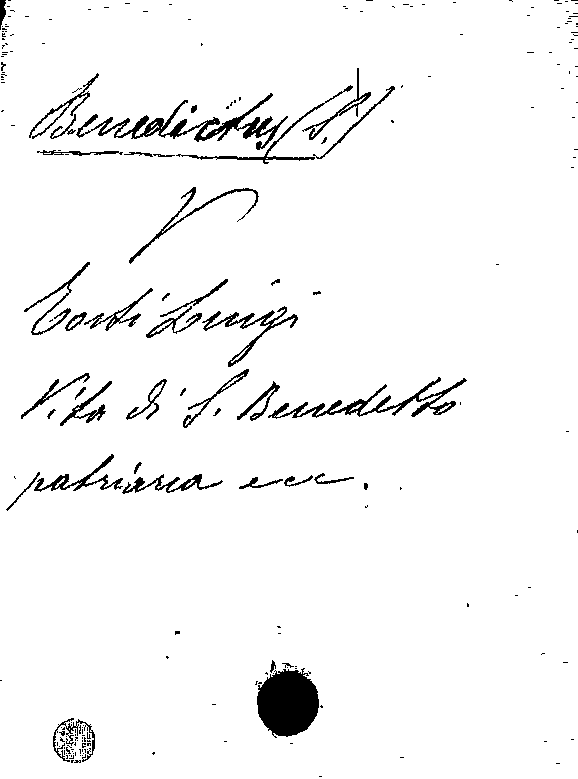 Benedictus (S.)
V
Tosti Luigi
Vita di S. Benedetto
patriarca ecc.